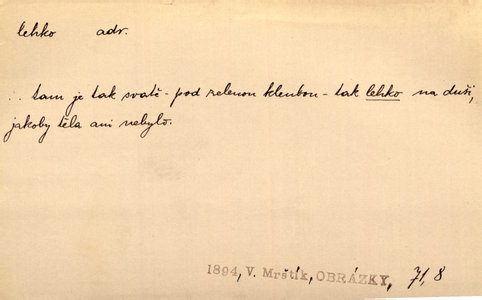 lehko adv.
.. tam je tak svatě - pod zelenou klenbou - tak lehko na duši,
jakoby těla ani nebylo.
1894, V. Mrštík, OBRÁZKY, 71, 8